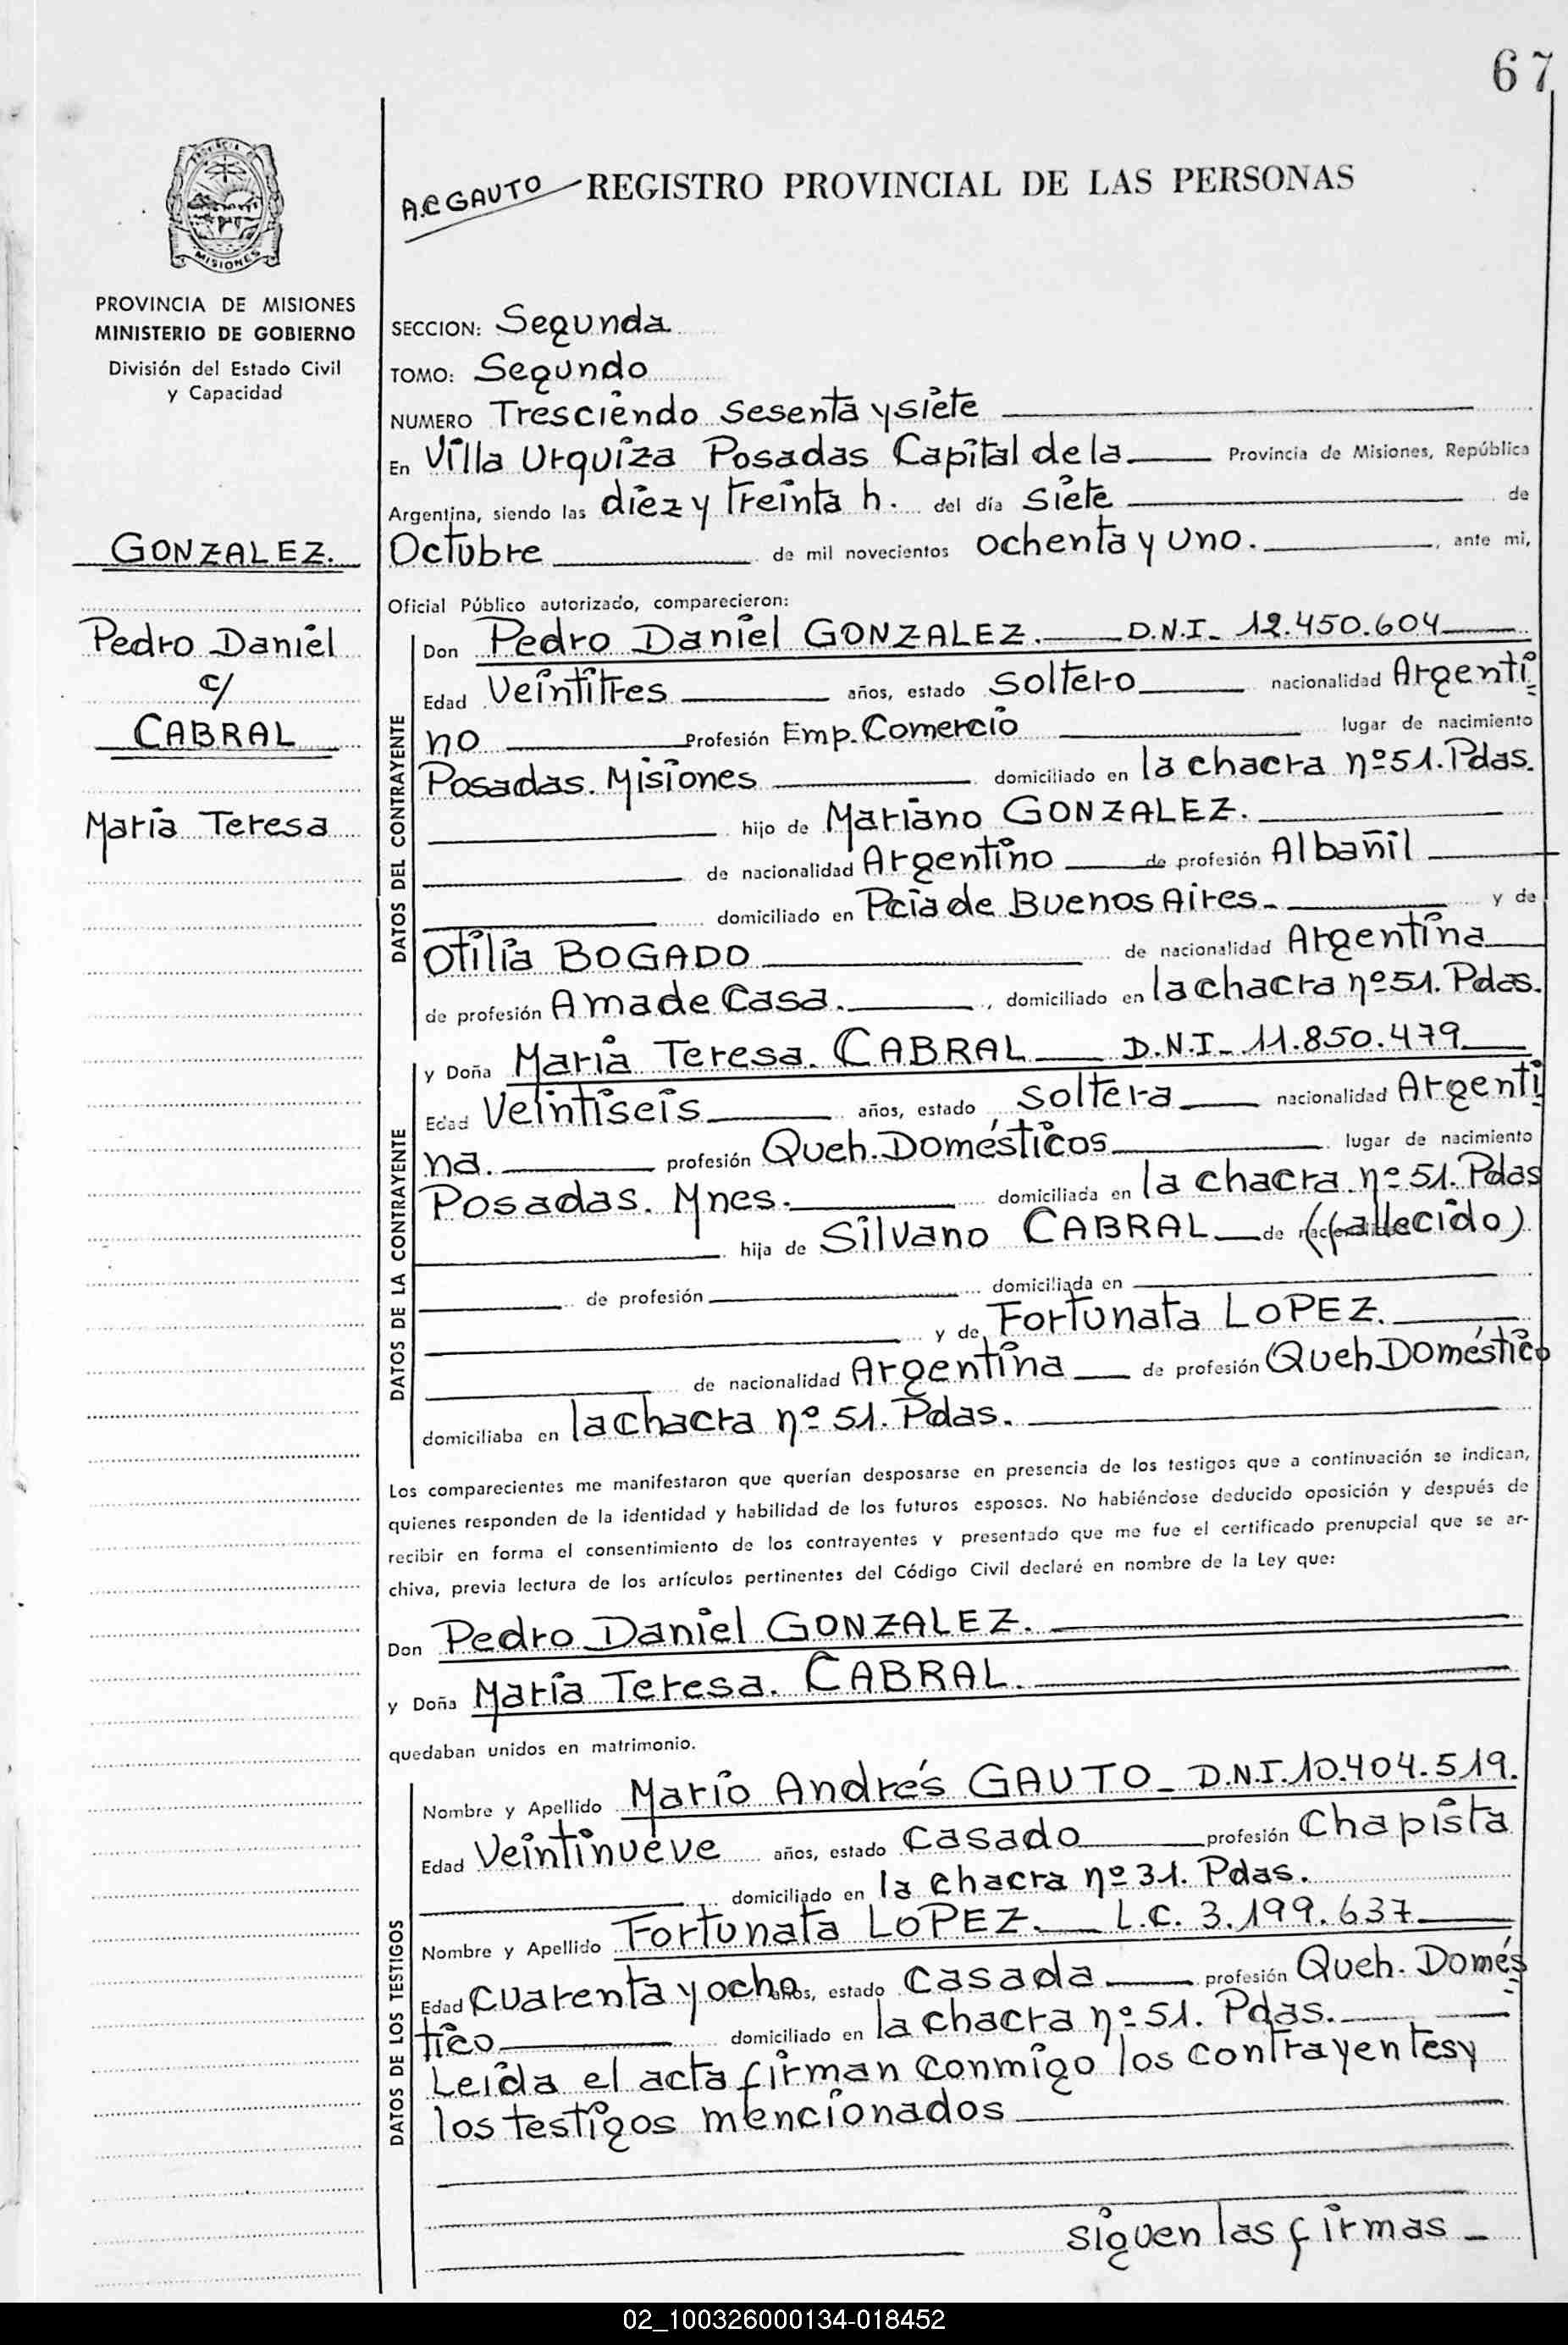 67
PROVINCIA DE
MISIONES
A.C GAUTO REGISTRO PROVINCIAL DE LAS PERSONAS
PROVINCIA DE MISIONES
MINISTERIO DE GOBIERNO
División del Estado Civil
y Capacidad
GONZALEZ.
Pedro Daniel
c/
CABRAL
María Teresa
SECCION: Segunda
TOMO: Segundo
NUMERO Tresciendo sesenta y siete
En Villa Urquiza Posadas Capital de la Provincia de Misiones, República
Argentina, siendo las diez y treinta h. del día siete de
Octubre de mil novecientos ochenta y uno. , ante mi,
Oficial Público autorizado, comparecieron:
DATOS DEL CONTRAYENTE
Don Pedro Daniel GONZALEZ. D.N.I. 12.450.604
Edad Veintitres años, estado soltero nacionalidad Argenti
no Profesión Emp. Comercio lugar de nacimiento
Posadas. Misiones domiciliado en la chacra nº 51. Pdas.
hijo de Mariano GONZALEZ.
de nacionalidad Argentino de profesión Albañil
domiciliado en Pcia de Buenos Aires. y de
Otilia BOGADO de nacionalidad Argentina
de profesión Ama de Casa. , domiciliado en la chacra nº 51. Pdas.
DATOS DE LA CONTRAYENTE
y Doña María Teresa. CABRAL D.N.I. 11.850.479
Edad Veintiseis años, estado soltera nacionalidad Argenti
na. profesión Queh. Domésticos lugar de nacimiento
Posadas. Mnes. domiciliada en la chacra nº 51. Pdas
hija de Silvano CABRAL de nacionalidad (fallecido)
de profesión domiciliada en
y de Fortunata LOPEZ.
de nacionalidad Argentina de profesión Queh Doméstico
domiciliaba en la chacra nº 51. Pdas.
Los comparecientes me manifestaron que querían desposarse en presencia de los testigos que a continuación se indican,
quienes responden de la identidad y habilidad de los futuros esposos. No habiéndose deducido oposición y después de
recibir en forma el consentimiento de los contrayentes y presentado que me fue el certificado prenupcial que se ar-
chiva, previa lectura de los artículos pertinentes del Código Civil declaré en nombre de la Ley que:
Don Pedro Daniel GONZALEZ.
y Doña María Teresa. CABRAL.
quedaban unidos en matrimonio.
DATOS DE LOS TESTIGOS
Nombre y Apellido Mario Andrés GAUTO - D.N.I. 10.404.519.
Edad Veintinueve años, estado casado profesión Chapista
domiciliado en la chacra nº 31. Pdas.
Nombre y Apellido Fortunata LOPEZ. L.C. 3.199.637
Edad cuarenta y ocho años, estado casada profesión Queh. Domés
tico domiciliado en la chacra nº 51. Pdas.
Leida el acta firman conmigo los contrayentes y
los testigos mencionados
siguen las firmas -
02_100326000134-018452